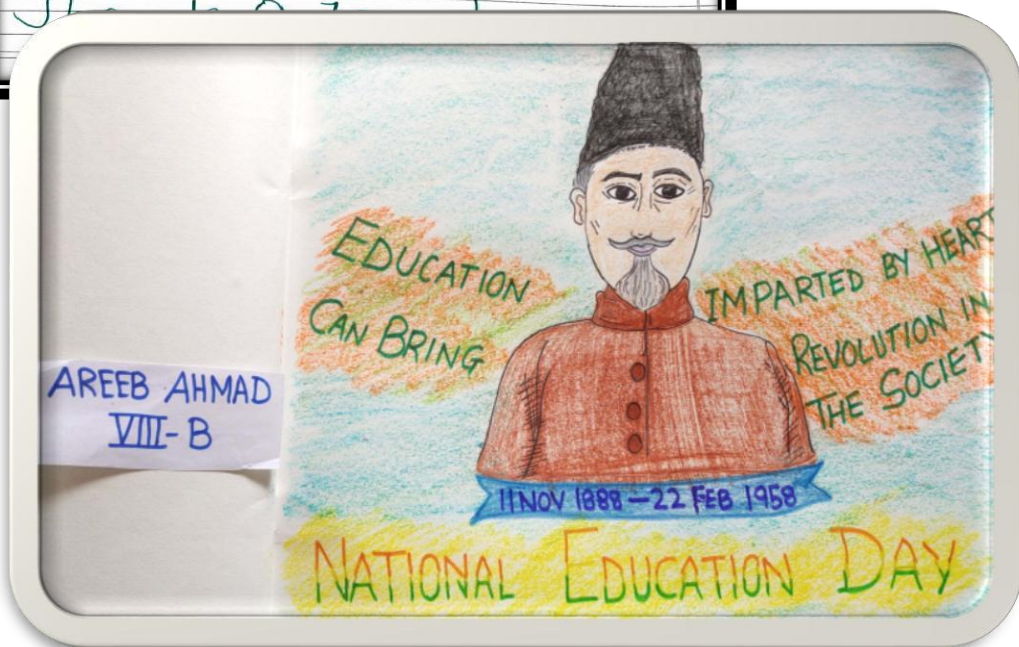 AREEB AHMAD
VIII-B
EDUCATION IMPARTED BY HEART
CAN BRING REVOLUTION IN
THE SOCIETY
11 NOV 1888 – 22 FEB 1958
NATIONAL EDUCATION DAY